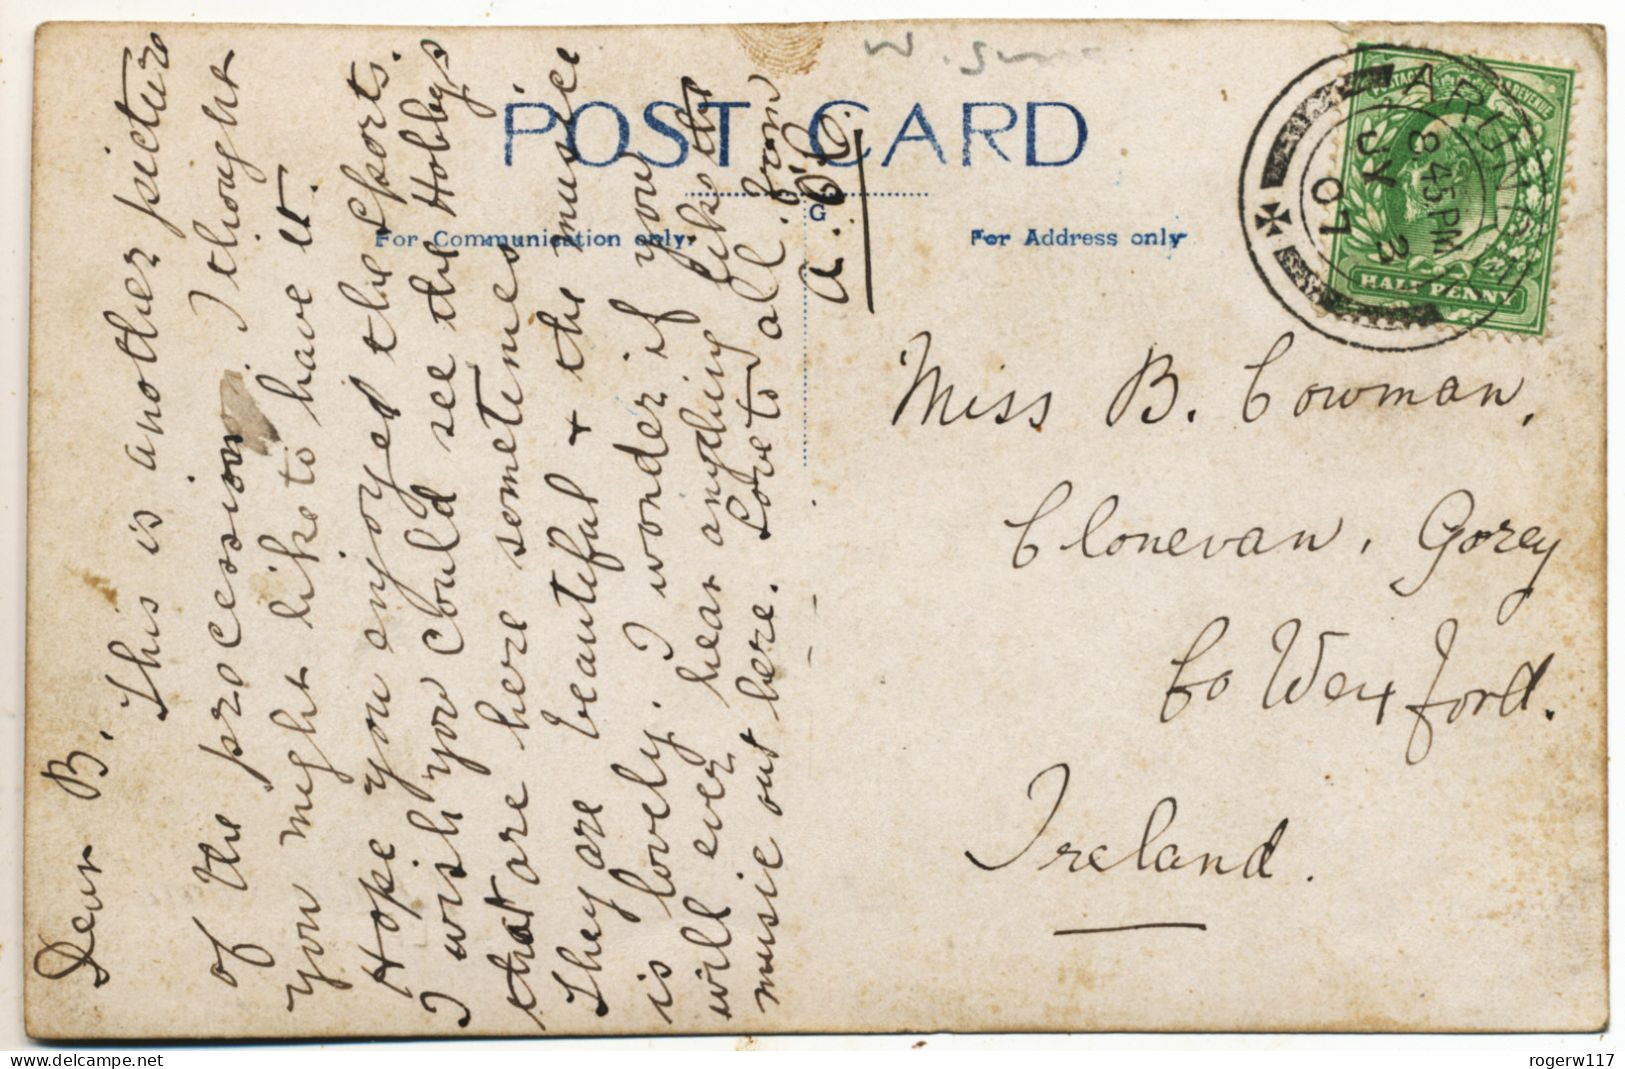 W.
POST CARD
G
For Communication only.
For Address only
POSTAGE REVENUE
HALF PENNY
ARUNDEL
8.45 PM
JY 3
07
Dear B.
This is another picture
of the procession I thought
you might like to have it.
Hope you enjoyed the Sports.
I wish you could see the Hobbys
that are here sometimes
They are beautiful & the music
is lovely. I wonder if you
will ever hear anything like the
music out here. Love to all from
Miss B. Cowman,
Clonevan, Gorey
Co Wexford.
Ireland.
rogerw117